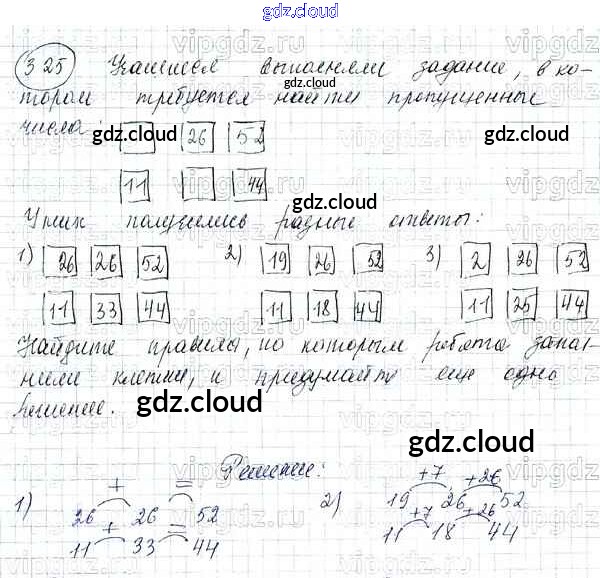 gdz.cloud
325 Учащиеся выполняли задание, в ко-
тором требуется найти пропущенные
gdz.cloud
числа: 26 52
gdz.cloud
11 44
gdz.cloud
У них получились разные ответы:
1) 26 26 52 2) 19 26 52 3) 2 26 52
11 33 44 11 18 44 11 25 44
gdz.cloud
Найдите правила, по которым ребята запол-
нили клетки, и придумайте еще одно
решение.
gdz.cloud
gdz.cloud
Решение:
+ = +7 +26
1) 26 26 52 2) 19 26 52
+ = +7 +26
11 33 44 11 18 44